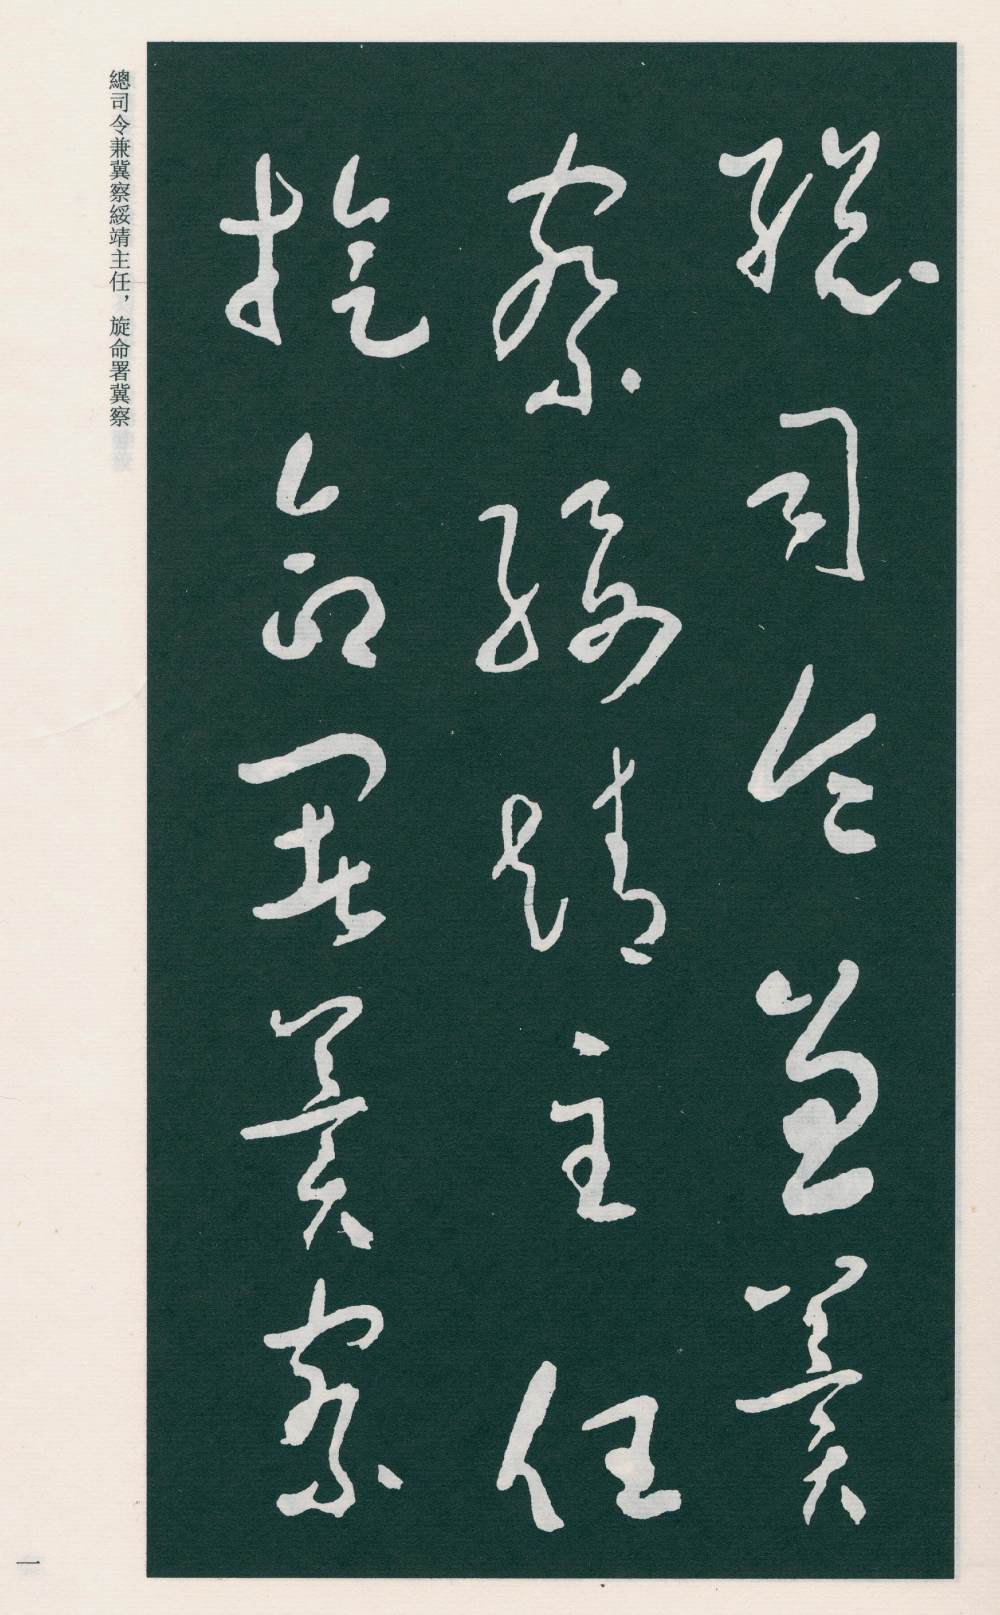 總司令兼冀
察綏靖主任
旋命署冀察
總司令兼冀察綏靖主任，旋命署冀察
一